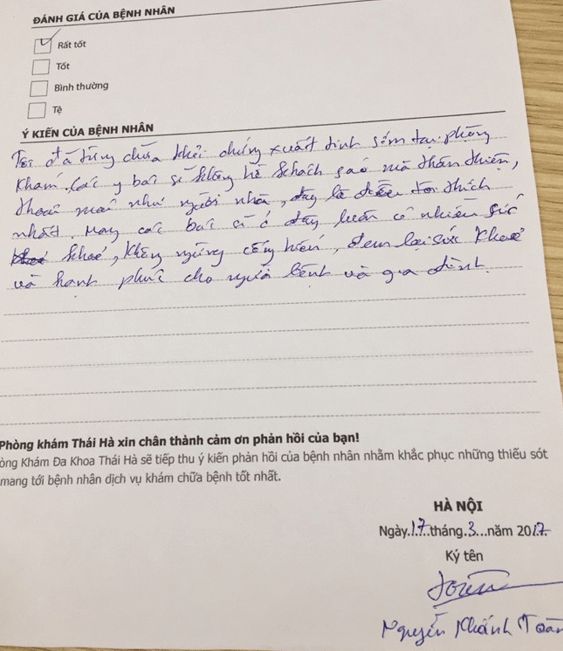 ĐÁNH GIÁ CỦA BỆNH NHÂN
Rất tốt
Tốt
Bình thường
Tệ
Ý KIẾN CỦA BỆNH NHÂN
Tôi đã từng chữa khỏi chứng xuất tinh sớm tại phòng
khám. Các y bác sĩ không hề khách sáo mà thân thiện,
thoải mái như người nhà, đây là điều tôi thích
nhất. Mong các bác sĩ ở đây luôn có nhiều sức
khoẻ, không ngừng cống hiến, đem lại sức khoẻ
và hạnh phúc cho người bệnh và gia đình.
Phòng khám Thái Hà xin chân thành cảm ơn phản hồi của bạn!
òng Khám Đa Khoa Thái Hà sẽ tiếp thu ý kiến phản hồi của bệnh nhân nhằm khắc phục những thiếu sót
mang tới bệnh nhân dịch vụ khám chữa bệnh tốt nhất.
HÀ NỘI
Ngày.17.tháng.3...năm 2017
Ký tên
Nguyễn Khánh Toàn